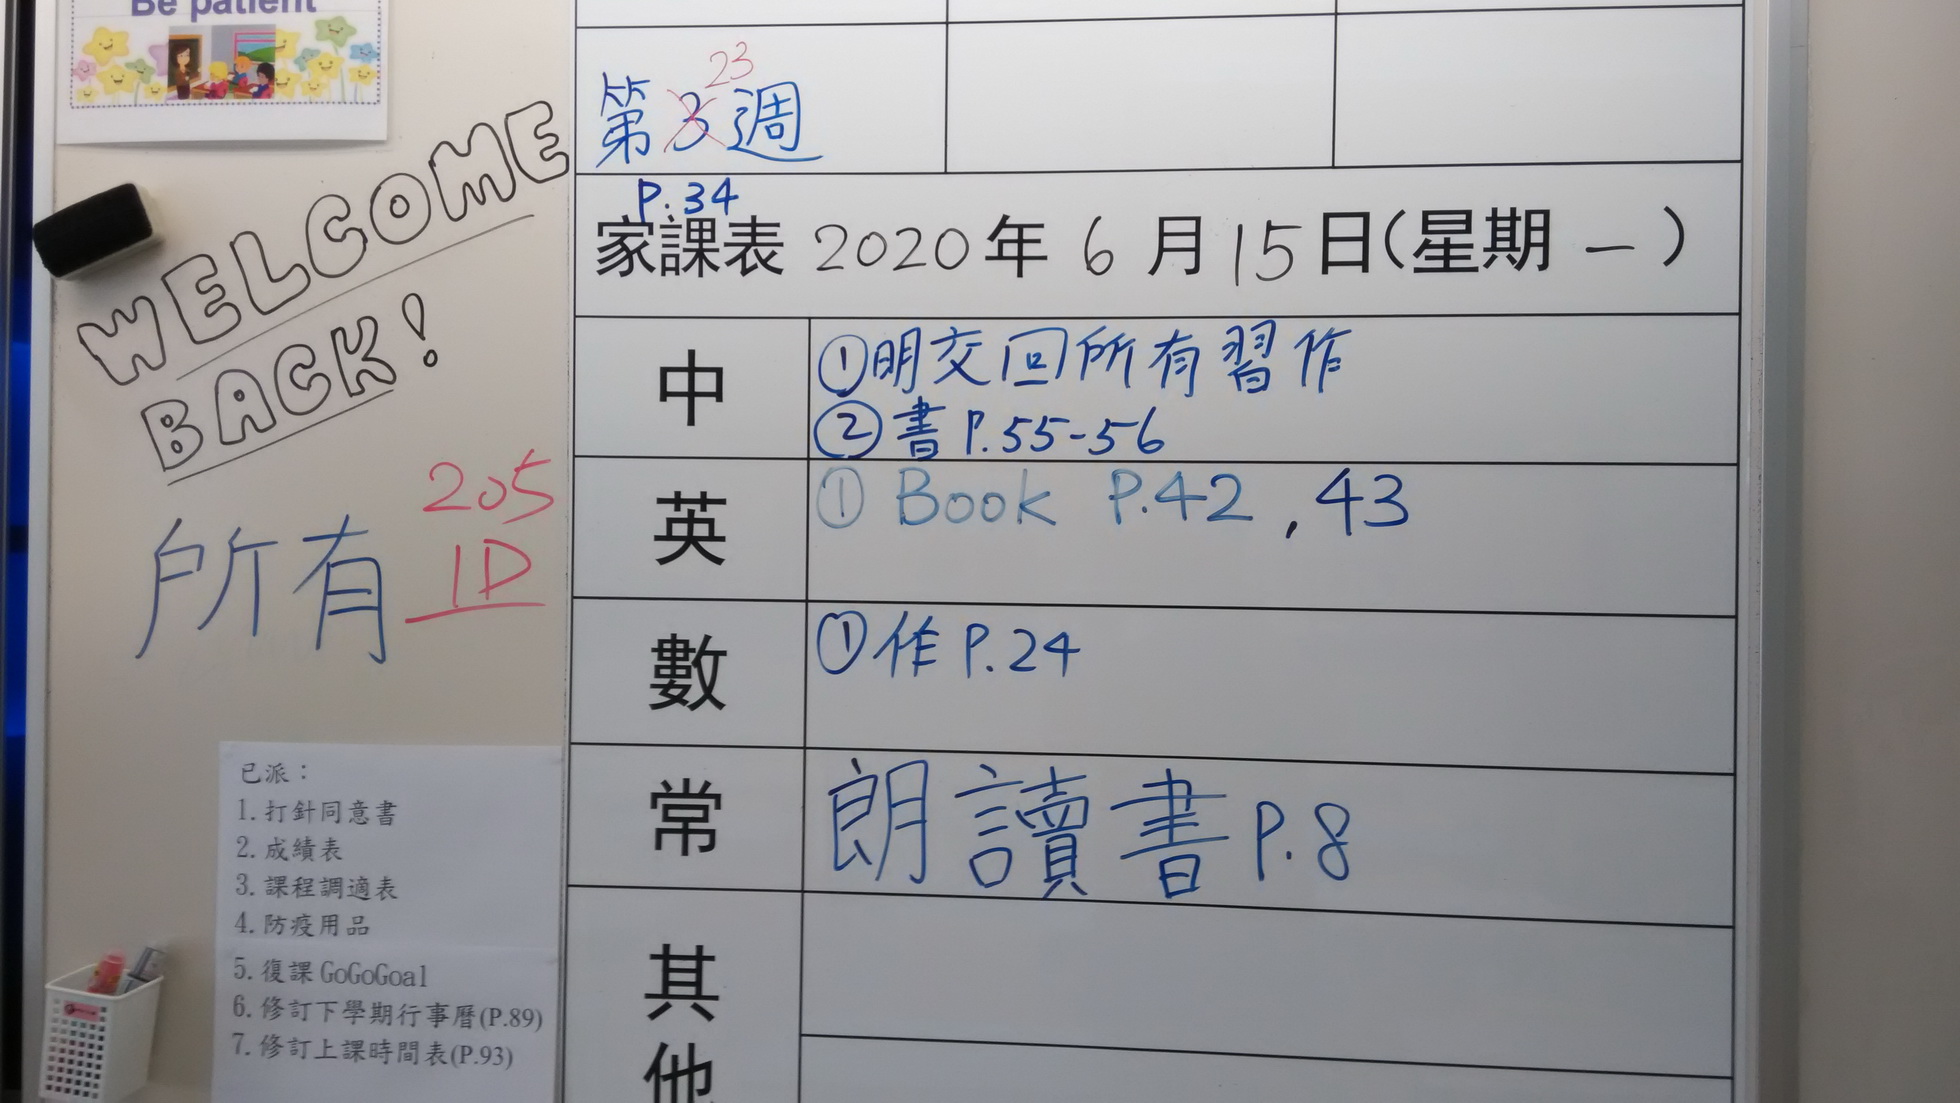 Be patient
WELCOME
BACK!
所有
205
1D
已派：
1. 打針同意書
2. 成績表
3. 課程調適表
4. 防疫用品
5. 復課 GoGoGoal
6. 修訂下學期行事曆(P.89)
7. 修訂上課時間表(P.93)
23
第3週
P.34
家課表 2020年 6 月 15日(星期 一 )
中
①明交回所有習作
②書 P.55-56
英
① Book P.42 , 43
數
①作 P.24
常
朗讀書 P.8
其他